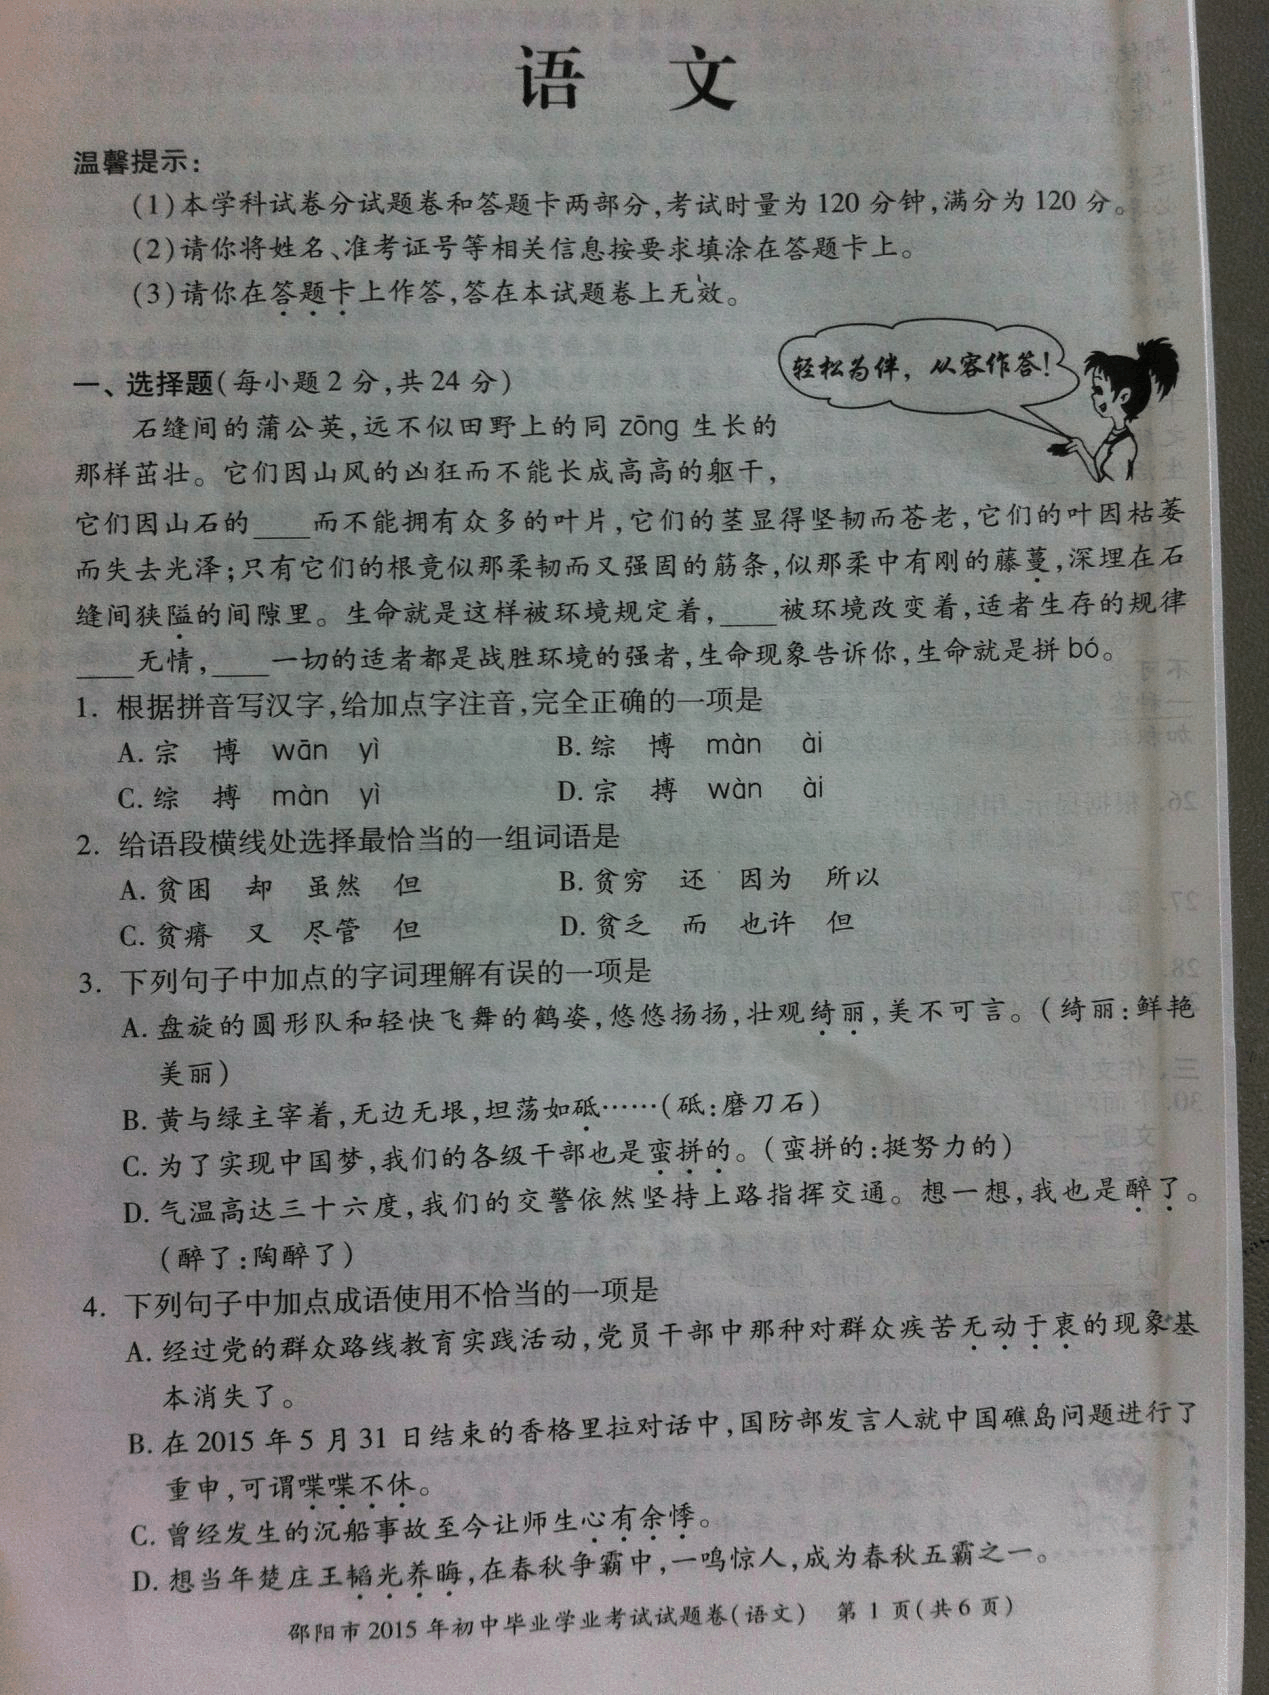 语 文
温馨提示:
(1)本学科试卷分试题卷和答题卡两部分,考试时量为 120 分钟,满分为 120 分。
(2)请你将姓名、准考证号等相关信息按要求填涂在答题卡上。
(3)请你在答题卡上作答,答在本试题卷上无效。
轻松为伴，从容作答!
一、选择题(每小题 2 分,共 24 分)
石缝间的蒲公英,远不似田野上的同 zōng 生长的
那样茁壮。它们因山风的凶狂而不能长成高高的躯干,
它们因山石的____而不能拥有众多的叶片,它们的茎显得坚韧而苍老,它们的叶因枯萎
而失去光泽;只有它们的根竟似那柔韧而又强固的筋条,似那柔中有刚的藤蔓,深埋在石
缝间狭隘的间隙里。生命就是这样被环境规定着,____被环境改变着,适者生存的规律
____无情,____一切的适者都是战胜环境的强者,生命现象告诉你,生命就是拼 bó。
1. 根据拼音写汉字,给加点字注音,完全正确的一项是
A. 宗 博 wān yì B. 综 博 màn ài
C. 综 搏 màn yì D. 宗 搏 wàn ài
2. 给语段横线处选择最恰当的一组词语是
A. 贫困 却 虽然 但 B. 贫穷 还 因为 所以
C. 贫瘠 又 尽管 但 D. 贫乏 而 也许 但
3. 下列句子中加点的字词理解有误的一项是
A. 盘旋的圆形队和轻快飞舞的鹤姿,悠悠扬扬,壮观绮丽,美不可言。(绮丽:鲜艳
美丽)
B. 黄与绿主宰着,无边无垠,坦荡如砥……(砥:磨刀石)
C. 为了实现中国梦,我们的各级干部也是蛮拼的。(蛮拼的:挺努力的)
D. 气温高达三十六度,我们的交警依然坚持上路指挥交通。想一想,我也是醉了。
(醉了:陶醉了)
4. 下列句子中加点成语使用不恰当的一项是
A. 经过党的群众路线教育实践活动,党员干部中那种对群众疾苦无动于衷的现象基
本消失了。
B. 在 2015 年 5 月 31 日结束的香格里拉对话中,国防部发言人就中国礁岛问题进行了
重申,可谓喋喋不休。
C. 曾经发生的沉船事故至今让师生心有余悸。
D. 想当年楚庄王韬光养晦,在春秋争霸中,一鸣惊人,成为春秋五霸之一。
邵阳市 2015 年初中毕业学业考试试题卷(语文) 第 1 页(共 6 页)